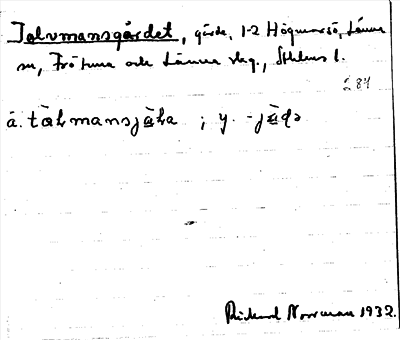 Tolvmansgärdet, gärde, 1-2 Högmarsö, Länna
sn, Frötuna och Länna skg., Sthlms l.
284
ä. tålmansjäla ; y. -jädə
Rickard Norrman 1932.